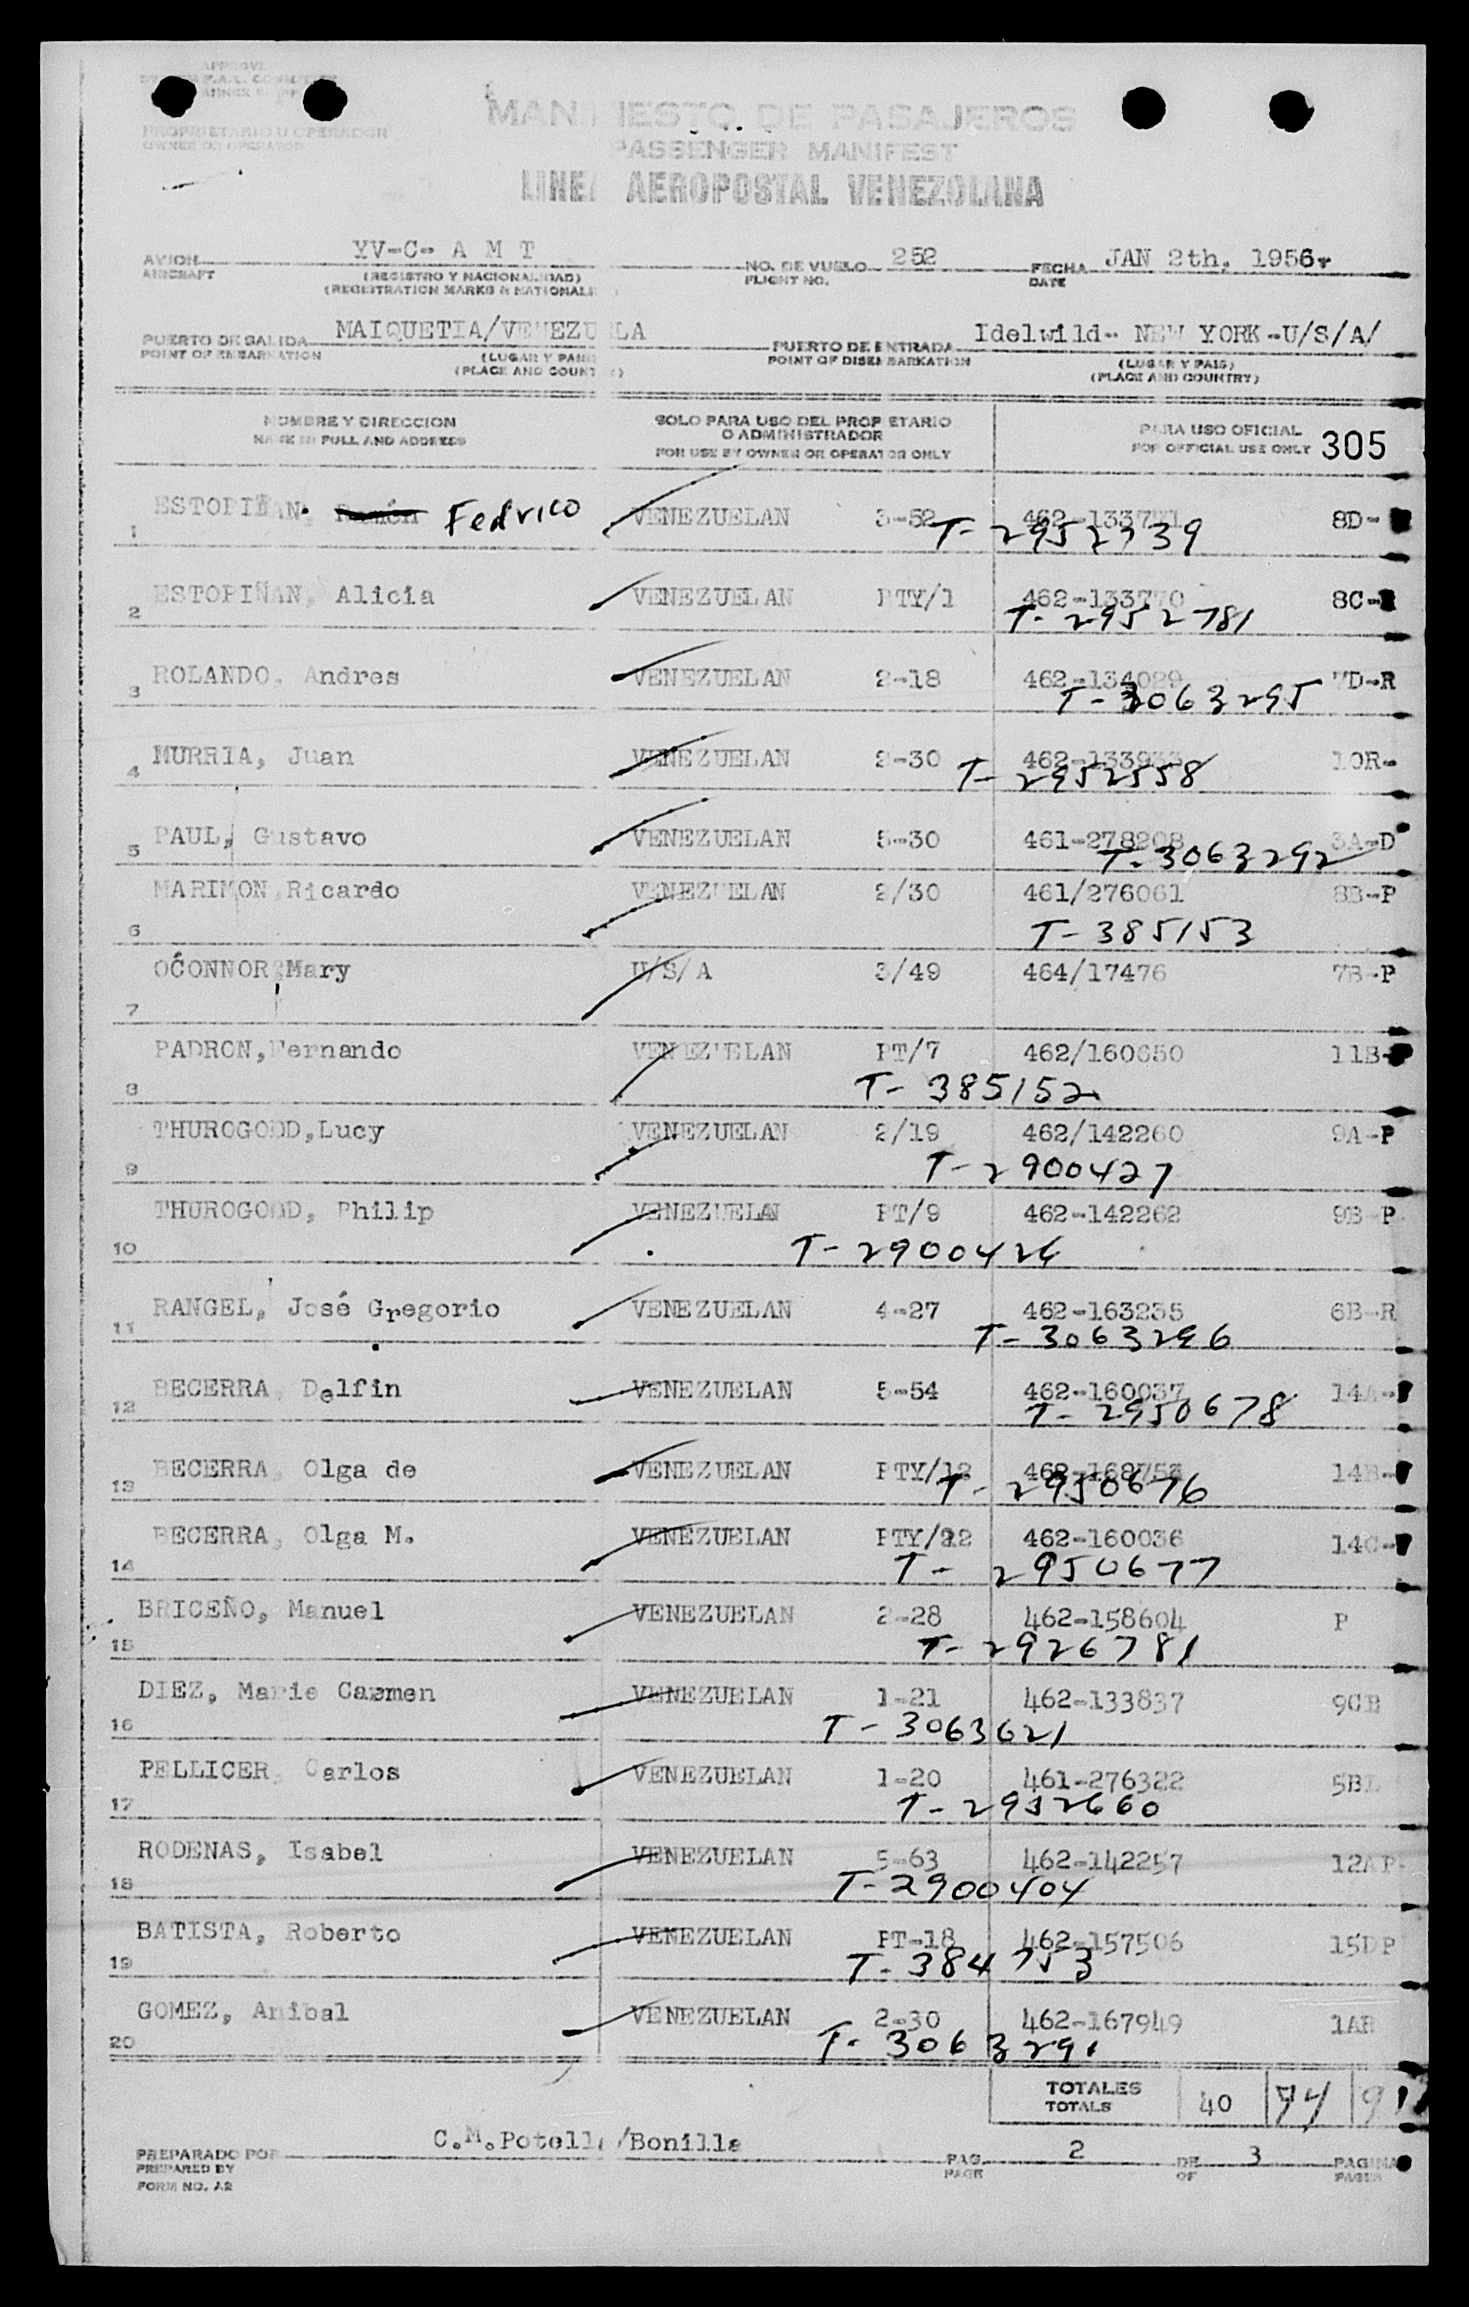 PROPRIETARIO U OPERADOR
OWNER OR OPERATOR
MANIFIESTO DE PASAJEROS
PASSENGER MANIFEST
LINEA AEROPOSTAL VENEZOLANA
AVION YV-C- A M T NO. DE VUELO 252 FECHA JAN 2th. 1956.
AIRCRAFT (REGISTRO Y NACIONALIDAD) FLIGHT NO. DATE
(REGISTRATION MARKS & NATIONALITY)
PUERTO DE SALIDA MAIQUETIA/VENEZUELA PUERTO DE ENTRADA Idelwild- NEW YORK-U/S/A/
POINT OF EMBARKATION (LUGAR Y PAIS) POINT OF DISEMBARKATION (LUGAR Y PAIS)
(PLACE AND COUNTRY) (PLACE AND COUNTRY)
NOMBRE Y DIRECCION SOLO PARA USO DEL PROPIETARIO PARA USO OFICIAL
NAME IN FULL AND ADDRESS O ADMINISTRADOR FOR OFFICIAL USE ONLY 305
FOR USE BY OWNER OR OPERATOR ONLY
1 ESTOPIÑAN, Ramón Fedrico VENEZUELAN 3-52 8D-
T- 2952739
2 ESTOPIÑAN, Alicia VENEZUELAN PTY/1 462-133770 8C-R
T- 2952781
3 ROLANDO, Andres VENEZUELAN 2-18 462-134029 7D-R
T- 3063295
4 MURRIA, Juan VENEZUELAN 2-30 10R-
T- 2952558
5 PAUL, Gustavo VENEZUELAN 5-30 461-278208 3A-D
T- 3063292
6 MARIMON, Ricardo VENEZUELAN 2/30 461/276061 8B-P
T- 385153
7 OĆONNOR, Mary U/S/A 3/49 464/17476 7B-P
8 PADRON, Fernando VENEZUELAN PT/7 462/160650 11B-P
T- 385152
9 THUROGOOD, Lucy VENEZUELAN 2/19 462/142260 9A-P
T- 2900427
10 THUROGOOD, Philip VENEZUELAN PT/9 462-142262 9B-P
T- 2900426
11 RANGEL, José Gregorio VENEZUELAN 4-27 462-163235 6B-R
T- 3063296
12 BECERRA, Delfin VENEZUELAN 5-54 462-160037 14A-P
T- 2950678
13 BECERRA, Olga de VENEZUELAN PTY/12 14B-P
T- 2950676
14 BECERRA, Olga M. VENEZUELAN PTY/12 462-160036 14C-P
T- 2950677
15 BRICEÑO, Manuel VENEZUELAN 2-28 462-158604 P
T- 2926781
16 DIEZ, Marie Carmen VENEZUELAN 1-21 462-133837 9CR
T- 3063621
17 PELLICER, Carlos VENEZUELAN 1-20 461-276322 5BL
T- 2952660
18 RODENAS, Isabel VENEZUELAN 5-63 462-142257 12AP-
T-2900404
19 BATISTA, Roberto VENEZUELAN PT-18 462-157506 15DP
T- 384753
20 GOMEZ, Anibal VENEZUELAN 2-30 462-167949 1AR
T- 3063291
TOTALES
TOTALS 40 94
PREPARADO POR C.M.Potella/Bonilla PAG. 2 DE 3 PAGINAS
PREPARED BY PAGE OF PAGES
FORM NO. A2